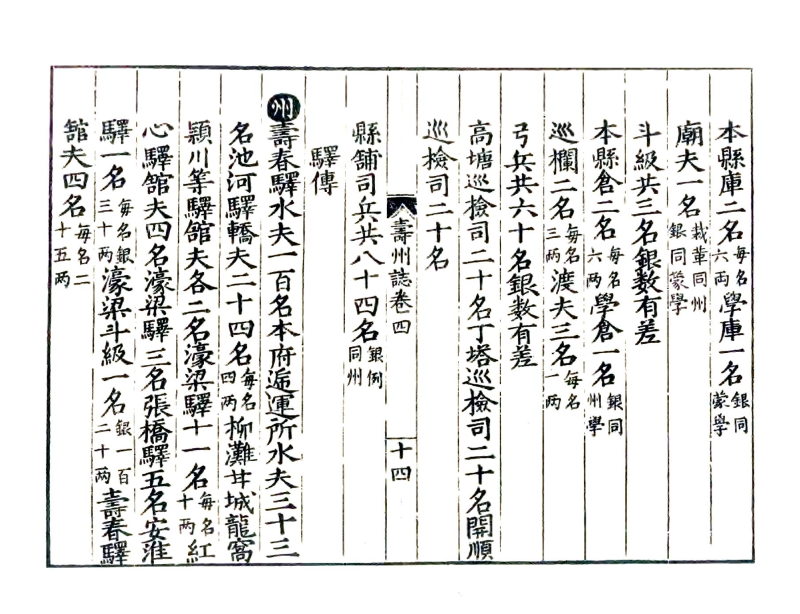 本縣庫二名每名六両學庫一名銀同蒙學
廟夫一名裁革同州銀同蒙學
斗級共三名銀数有差
本縣倉二名每名六两學倉一名銀同州學
巡欄二名每名三两渡夫三名每名一两
弓兵共六十名銀数有差
高塘巡檢司二十名丁塔巡檢司二十名開順
巡檢司二十名
壽州誌卷四 十四
縣舖司兵共八十四名銀例同州
驛傳
州壽春驛水夫一百名本府逓運所水夫三十三
名池河驛轎夫二十四名每名四两柳灘甘城龍窩
潁川等驛舘夫各二名濠梁驛十一名每名十两紅
心驛舘夫四名濠梁驛三名張橋驛五名安淮
驛一名每名銀三十两濠梁斗級一名銀一百二十两壽春驛
舘夫四名每名二十五两